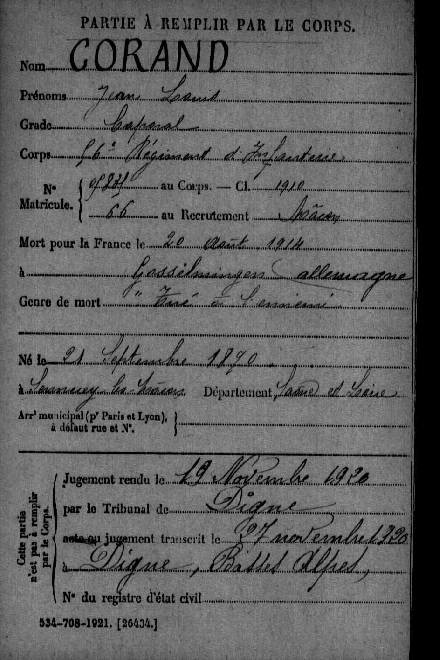 PARTIE À REMPLIR PAR LE CORPS.
Nom GORAND
Prénoms Jean Louis
Grade Caporal
Corps 56e Régiment d'Infanterie
N° Matricule. { au Corps. — Cl. 1910
66 au Recrutement Mâcon
Mort pour la France le 20 Août 1914
à Gosselmingen allemagne
Genre de mort " Tué à l'ennemi
Né le 21 Septembre 1890
à Sennecey les Mâcon Département Saône et Loire
Arrt municipal (pr Paris et Lyon), à défaut rue et N°. }
Cette partie n'est pas à remplir par le Corps.
Jugement rendu le 19 Novembre 1920
par le Tribunal de Digne
acte ou jugement transcrit le 27 novembre 1920
à Digne, Basses Alpes,
N° du registre d'état civil
534-708-1921. [26434.]